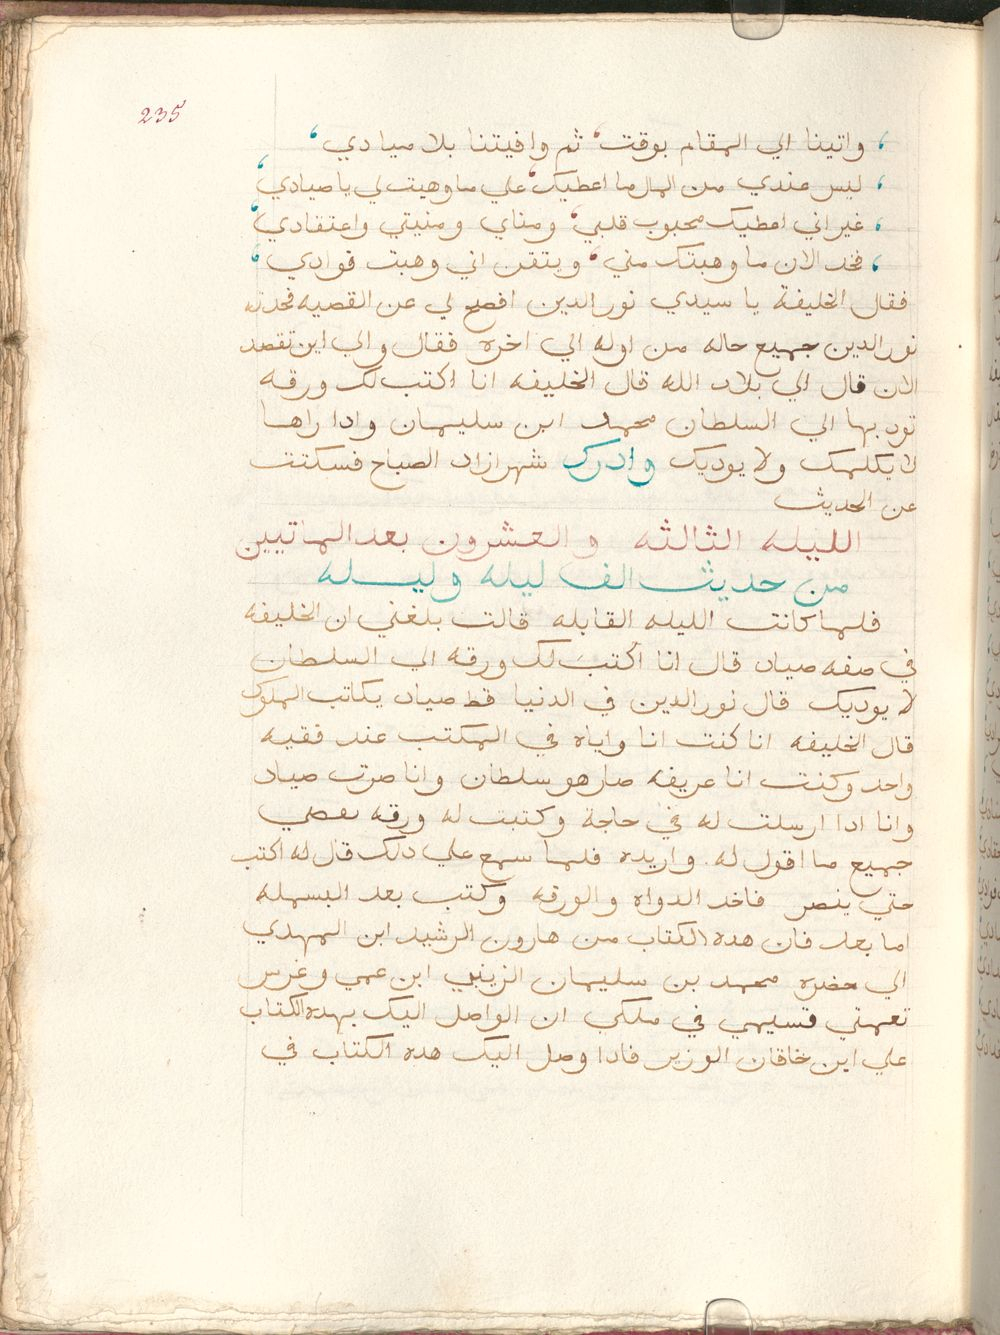 235
واتينا الي المقام بوقت، ثم وافيتنا بلا ميادي،
ليس عندي من المال ما اعطيك، علي ما وهبت لي يا صيادي،
غير اني اعطيك محبوب قلبي، ومناي ومنيتي واعتقادي،
فخد الان ما وهبتك مني، ويتقن اني وهبت فوادي،
فقال الخليفة يا سيدي نور الدين افصح لي عن القصيه فحدته
نور الدين جميع حاله من اوله الي اخره فقال والي اين تقصد
الان قال الي بلاد الله قال الخليفه انا اكتب لك ورقه
تود بها الي السلطان محمد ابن سليمان وادا راها
لا يكلمك ولا يوديك وادرك شهرازاد الصباح فسكتت
عن الحديث
الليله الثالثه والعشرون بعد الماتيين
من حديث الف ليله وليله
فلما كانت الليله القابله قالت بلغني ان الخليفه
في صفه صياد قال انا اكتب لك ورقه الي السلطان
لا يوديك قال نور الدين في الدنيا قط صياد يكاتب الملوك
قال الخليفه انا كنت انا واياه في المكتب عند فقيه
واحد وكنت انا عريفه صار هو سلطان وانا صرت صياد
وانا ادا ارسلت له في حاجة وكتبت له ورقه يقضي
جميع ما اقول له واريده فلما سمع علي دلك قال له اكتب
حتي ينصر فاخد الدواه والورقه وكتب بعد البسمله
اما بعد فان هده الكتاب من هارون الرشيد ابن المهدي
الي حضره محمد بن سليمان الزيني ابن عمي وغرس
نعمتي قسيمي في ملكي ان الواصل اليك بهده الكتاب
علي ابن خاقان الوزير فادا وصل اليك هده الكتاب في